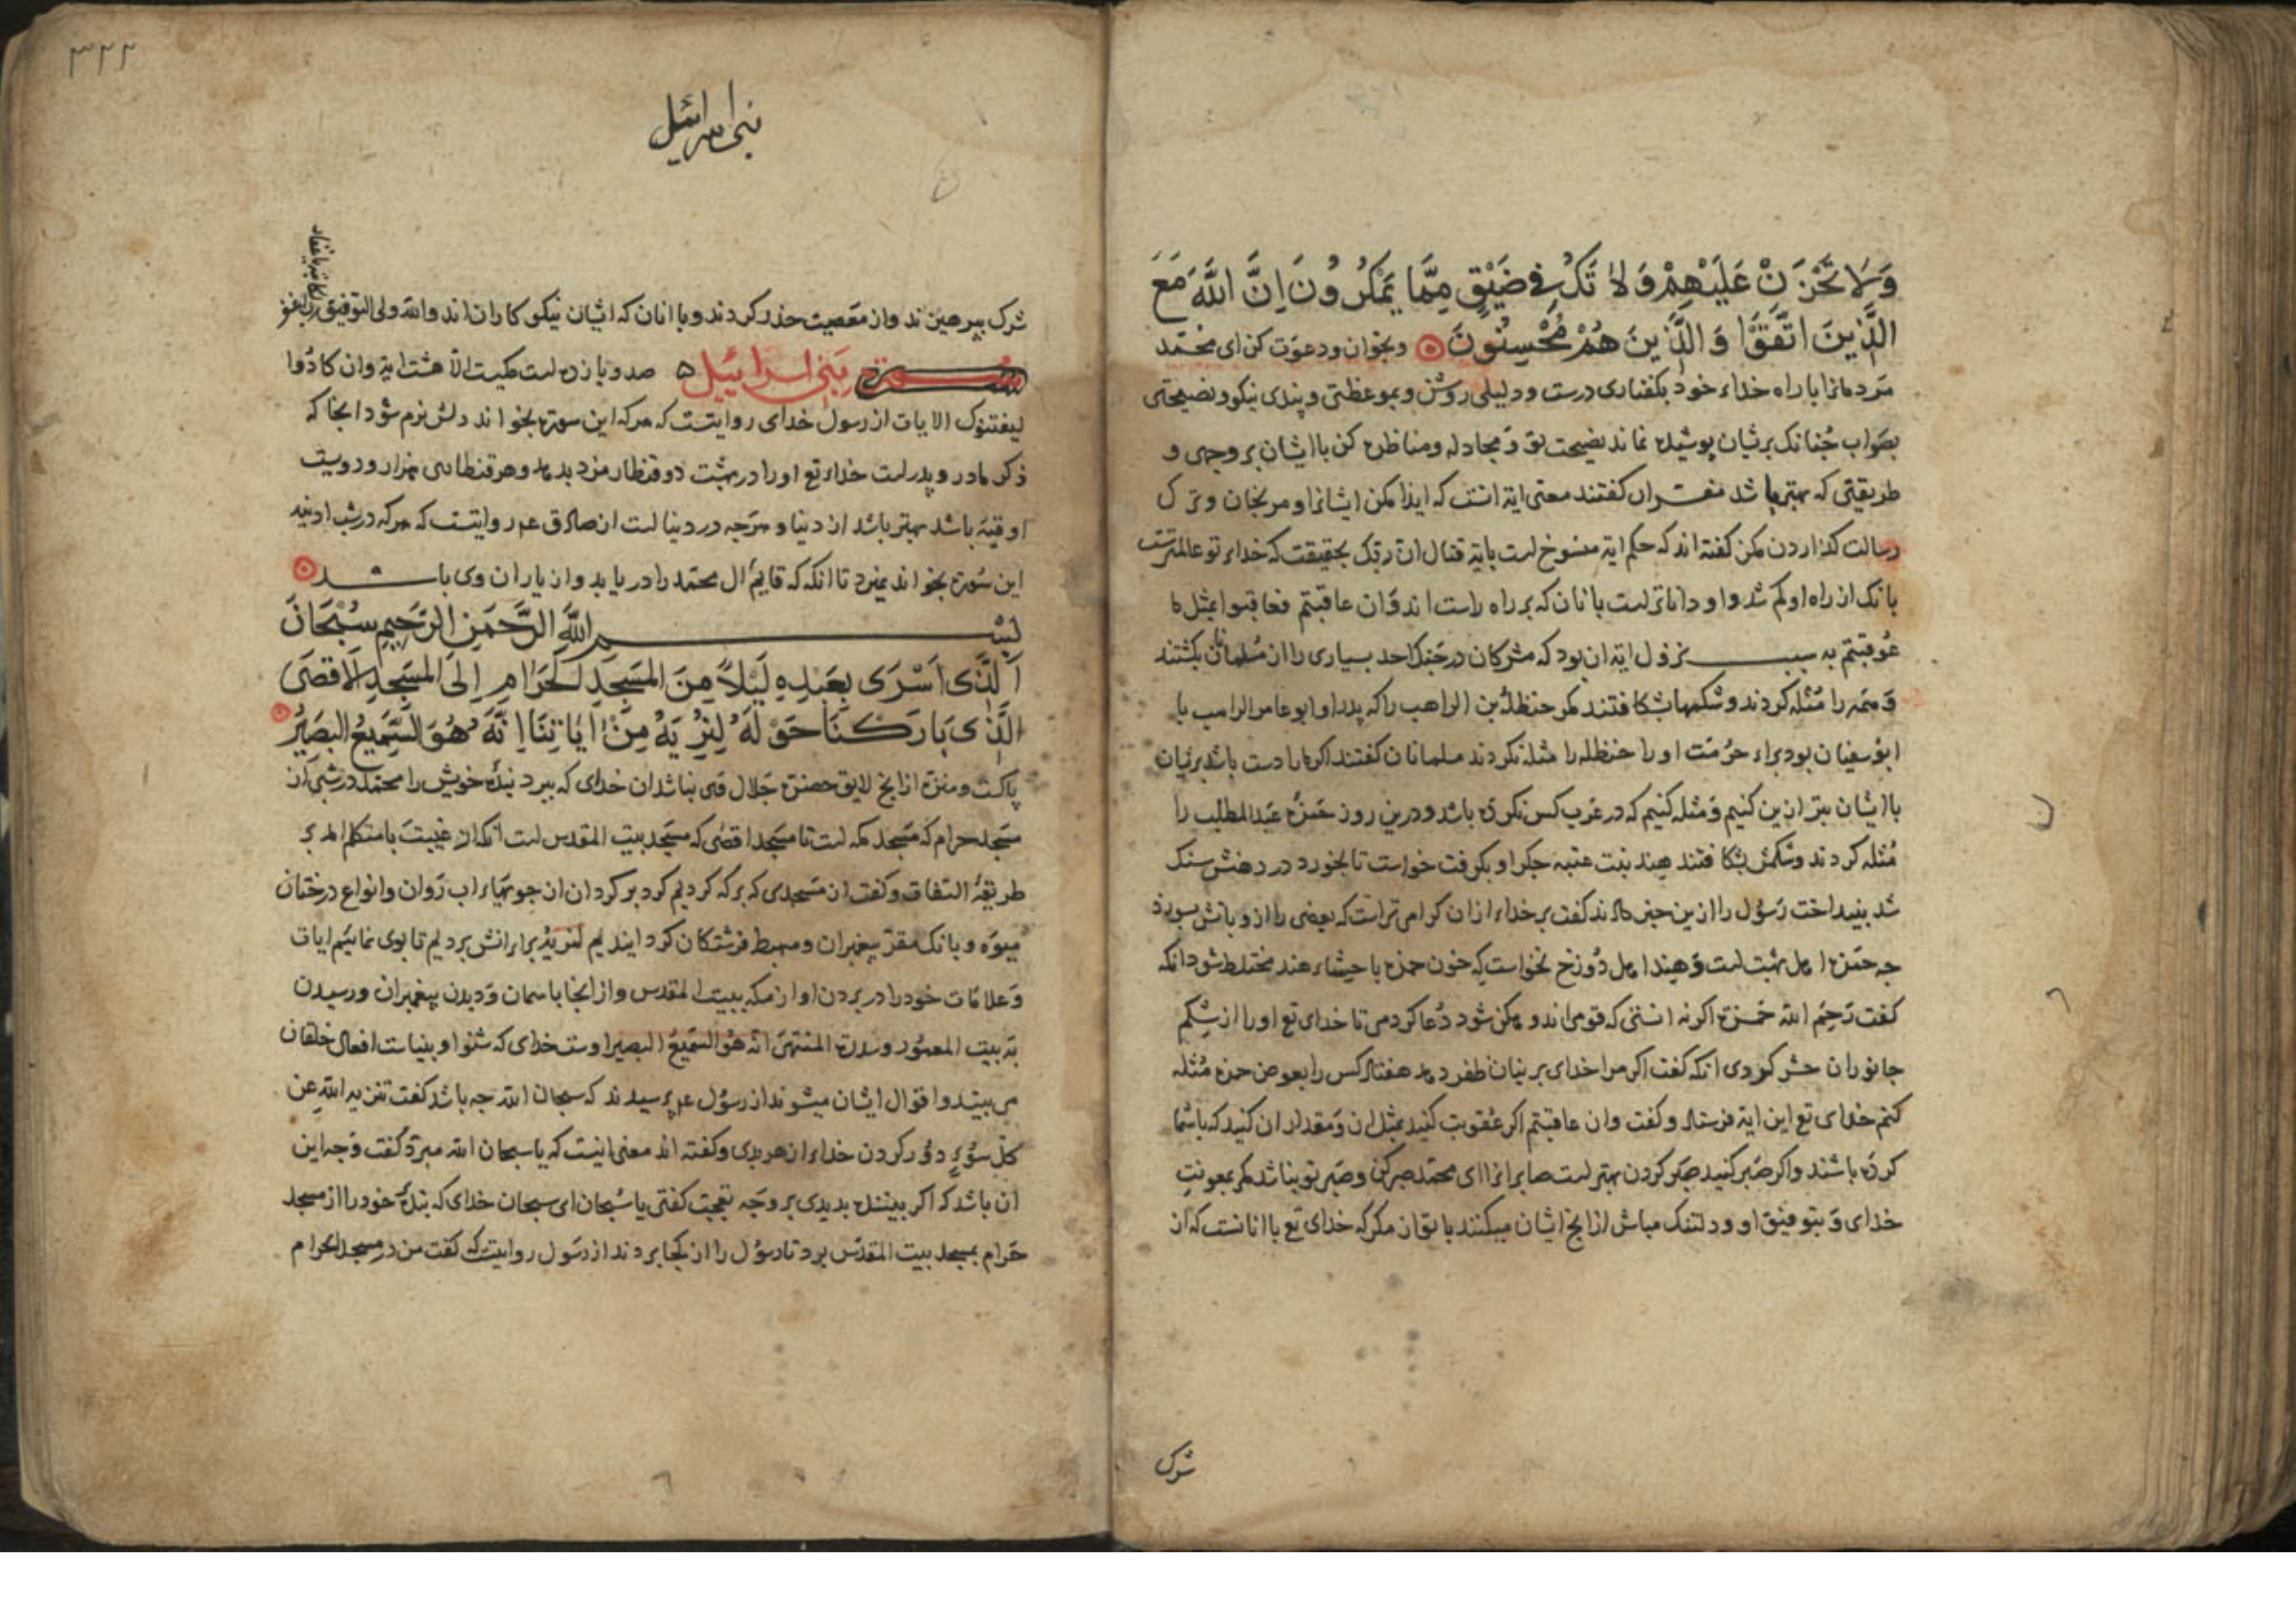 وَلَا تَحْزَنْ عَلَيْهِمْ وَلَا تَكُ فِي ضَيْقٍ مِمَّا يَمْكُرُونَ اِنَّ اللَّهَ مَعَ
الَّذِينَ اتَّقَوْا وَالَّذِينَ هُمْ مُحْسِنُونَ وبخوان ودعوت کن ای محمّد
مردمانرا با راه خداء خود بکفتاری درست ودلیلی روشن وبموعظتی وپندی نیکو ونصیحتی
بصواب جنانک برشان پوشیده نماند نصیحت تو ومجادله ومناظره کن با ایشان بر وجهی و
طریقتی که بهتر باشد مفسران کفتند معنی ایة انست که ایذا مکن ایشانرا و مرنجان وترک
رسالت کذاردن مکن کفته اند که حکم ایة منسوخ است بایة قتال ان ربک بحقیقت که خداء تو عالمترست
بانک از راه او کم شد و او داناتر است بانان که بر راه راست اند وان عاقبتم فعاقبوا بمثل ما
عوقبتم به سبب نزول ایة ان بود که مشرکان در جنک احد بسیاری را از مسلمانان بکشتند
وهمه را مثله کردند وشکمهابشکافتند مکر حنظلة بن الراهب را که پدر او ابو عامر الراهب با
ابو سفیان بود براء حرمت او را حنظله را مثله نکردند مسلمانان کفتند اکر ما را دست باشد برشان
با ایشان بتر ازین کنیم ومثله کنیم که در عرب کس نکرده باشد ودرین روز حمزه عبد المطلب را
مثله کردند وشکمش بشکافتند هند بنت عتبه جکر او بکرفت خواست تا بخورد در دهنش سنک
شد بینداخت رسول را ازین خبر دادند کفت بر خداء از ان کرامی تر است که بعضی را از و باتش بسوزد
جه حمزه اهل بهشت است وهند اهل دوزخ نخواست که خون حمزه با حشاء هند مختلط شود انکه
کفت رحم الله حمزة اکر نه انستی که قومی اندوهکن شود دعا کردمی تا خدای تع او را از شکم
جانوران حشر کردی انکه کفت اکر مرا خدای برشان ظفر دهد هفتاد کس را بعوض حمزه مثله
کنم خدای تع این ایة فرستاد و کفت وان عاقبتم اکر عقوبت کنید بمثل ان ومقدار ان کنید که باشما
کرده باشند واکر صبر کنید صبر کردن بهتر است صابرانرا ای محمد صبر کن وصبر تو نباشد مکر بمعونت
خدای و بتوفیق او ودلتنک مباش از انج ایشان میکنند با تو از مکر که خدای تع با انانست که از
شرک
۳۲۲
بنی اسرائیل
شرک بپرهیزند واز معصیت حذر کردند وبا انان که ایشان نیکو کاران اند والله ولی التوفیق
سورة بنی اسرائیل صد ویازده است مکیت الا هشت ایة وان کادوا
لیفتنونک الایات از رسول خدای روایتست که هر که این سورة بخواند دلش نرم شود انجا که
ذکر مادر وپدر است خداء تع او را در بهشت دو قنطار مزد بدهد وهر قنطاری هزار ودویست
اوقیه باشد بهتر باشد از دنیا و هرجه در دنیا است از صادق عم روایتست که هر که در شب ادینه
این سورة بخواند نمیرد تا انکه که قایم ال محمد را دریابد واز یاران وی باشد
بســم الله الرَّحْمَنِ الرَّحِيمِ سُبْحَانَ
الَّذِی اَسْرَی بِعَبْدِهِ لَيْلًا مِنَ الْمَسْجِدِ الْحَرَامِ اِلَی الْمَسْجِدِ الْاَقْصَی
الَّذِی بَارَكْنَا حَوْلَهُ لِنُرِيَهُ مِنْ اٰيَاتِنَا اِنَّهُ هُوَ السَّمِيعُ الْبَصِيرُ
پاکست ومنزه از انج لایق حضرت جلال وی نباشد ان خدای که ببرد بنده خویش را محمد در شبی از
مسجد حرام که مسجد مکه است تا مسجد اقصی که مسجد بیت المقدس است انکه از غیبت با متکلم امد بر
طریقة التفات وکفت ان مسجدی که برکه کردیم کرد بر کرد ان از جویهاء اب روان وانواع درختان
میوه وبانک مقر پیغمبران ومهبط فرشتکان کردانیدیم لنریه براء انش بردیم تا بوی نمائیم ایات
وعلامات خود را در بردن او از مکه ببیت المقدس واز انجا باسمان ودیدن پیغمبران ورسیدن
به بیت المعمور وسدرة المنتهی انه هو السمیع البصیر اوست خدای که شنوا وبیناست افعال خلقان
می بیند واقوال ایشان میشنود از رسول عم پرسیدند که سبحان الله جه باشد کفت تنزیه الله عن
کل سوء دور کردن خداء از هر بدی وکفته اند معنی انیست که یا سبحان الله مبرد کفت وجه این
ان باشد که اکر بیننده بدیدی بر وجه تعجب کفتی یا سبحان ای سبحان خدای که بنده خود را از مسجد
حرام بمسجد بیت المقدس برد تا رسول را از کجا بردند از رسول روایتست که کفت من در مسجد الحرام